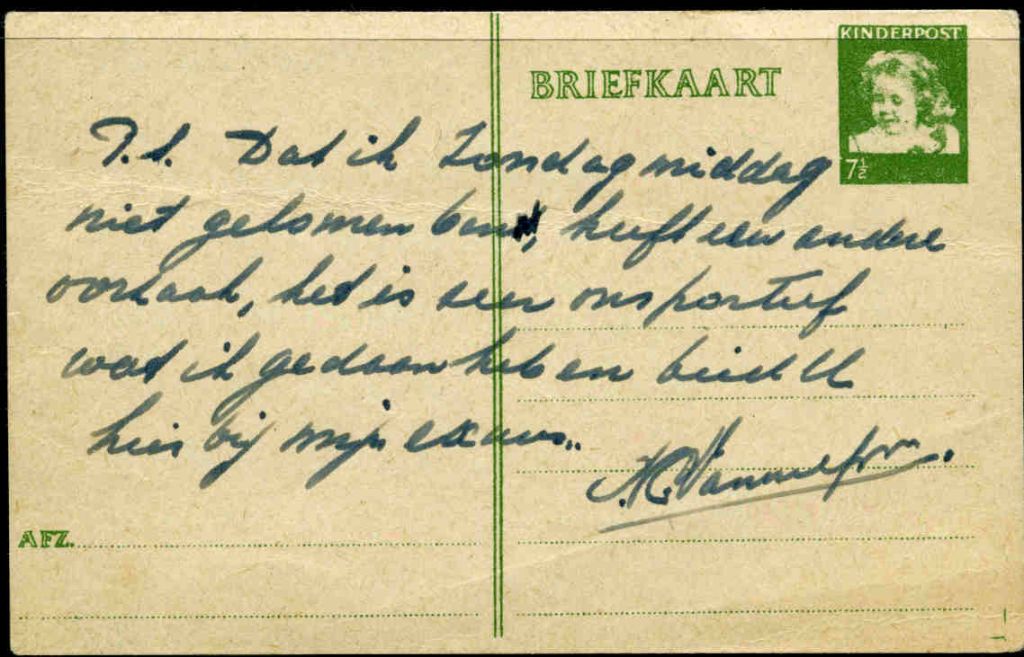 KINDERPOST
BRIEFKAART
7½
P.S. Dat ik Zondagmiddag
niet gekomen ben, heeft een andere
oorzaak, het is zeer onsportief
wat ik gedaan heb en bied U
hier bij mijn excuus..
AFZ.